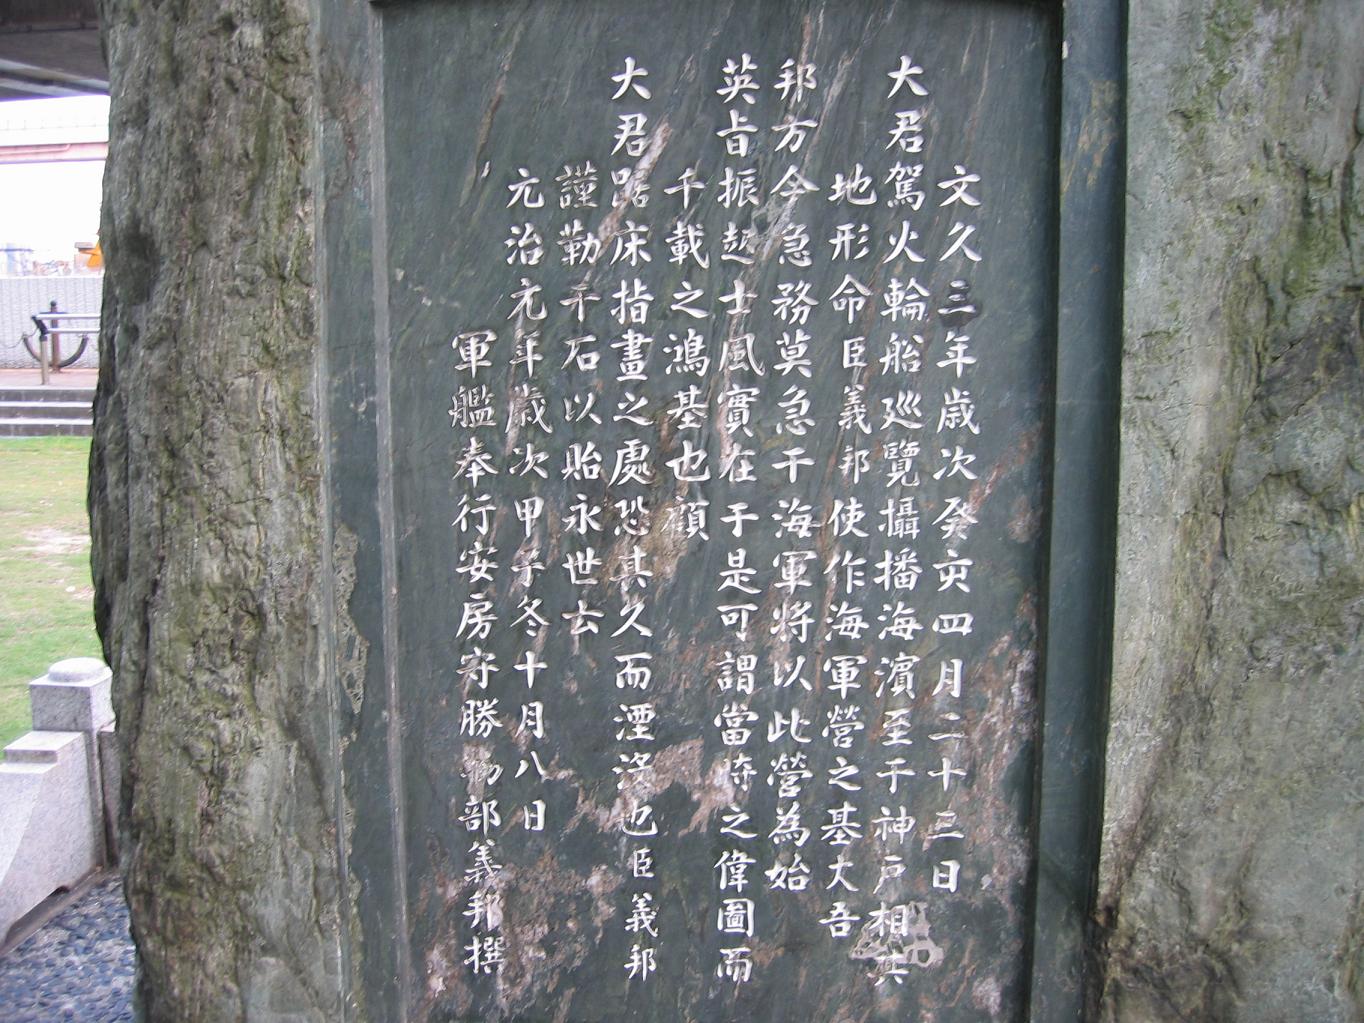 文久三年歳次癸亥四月二十三日
大君駕火輪船巡覽攝播海濱至于神戸相其
地形命臣義邦使作海軍營之基大吾
邦方今急務莫急于海軍将以此營為始
英旨振起士風實在于是可謂當時之偉圖而
千載之鴻基也顧
大君踞床指畫之處恐其久而湮滅也臣義邦
謹勒于石以貽永世去
元治元年歳次甲子冬十月八日
軍艦奉行安房守勝物部義邦撰